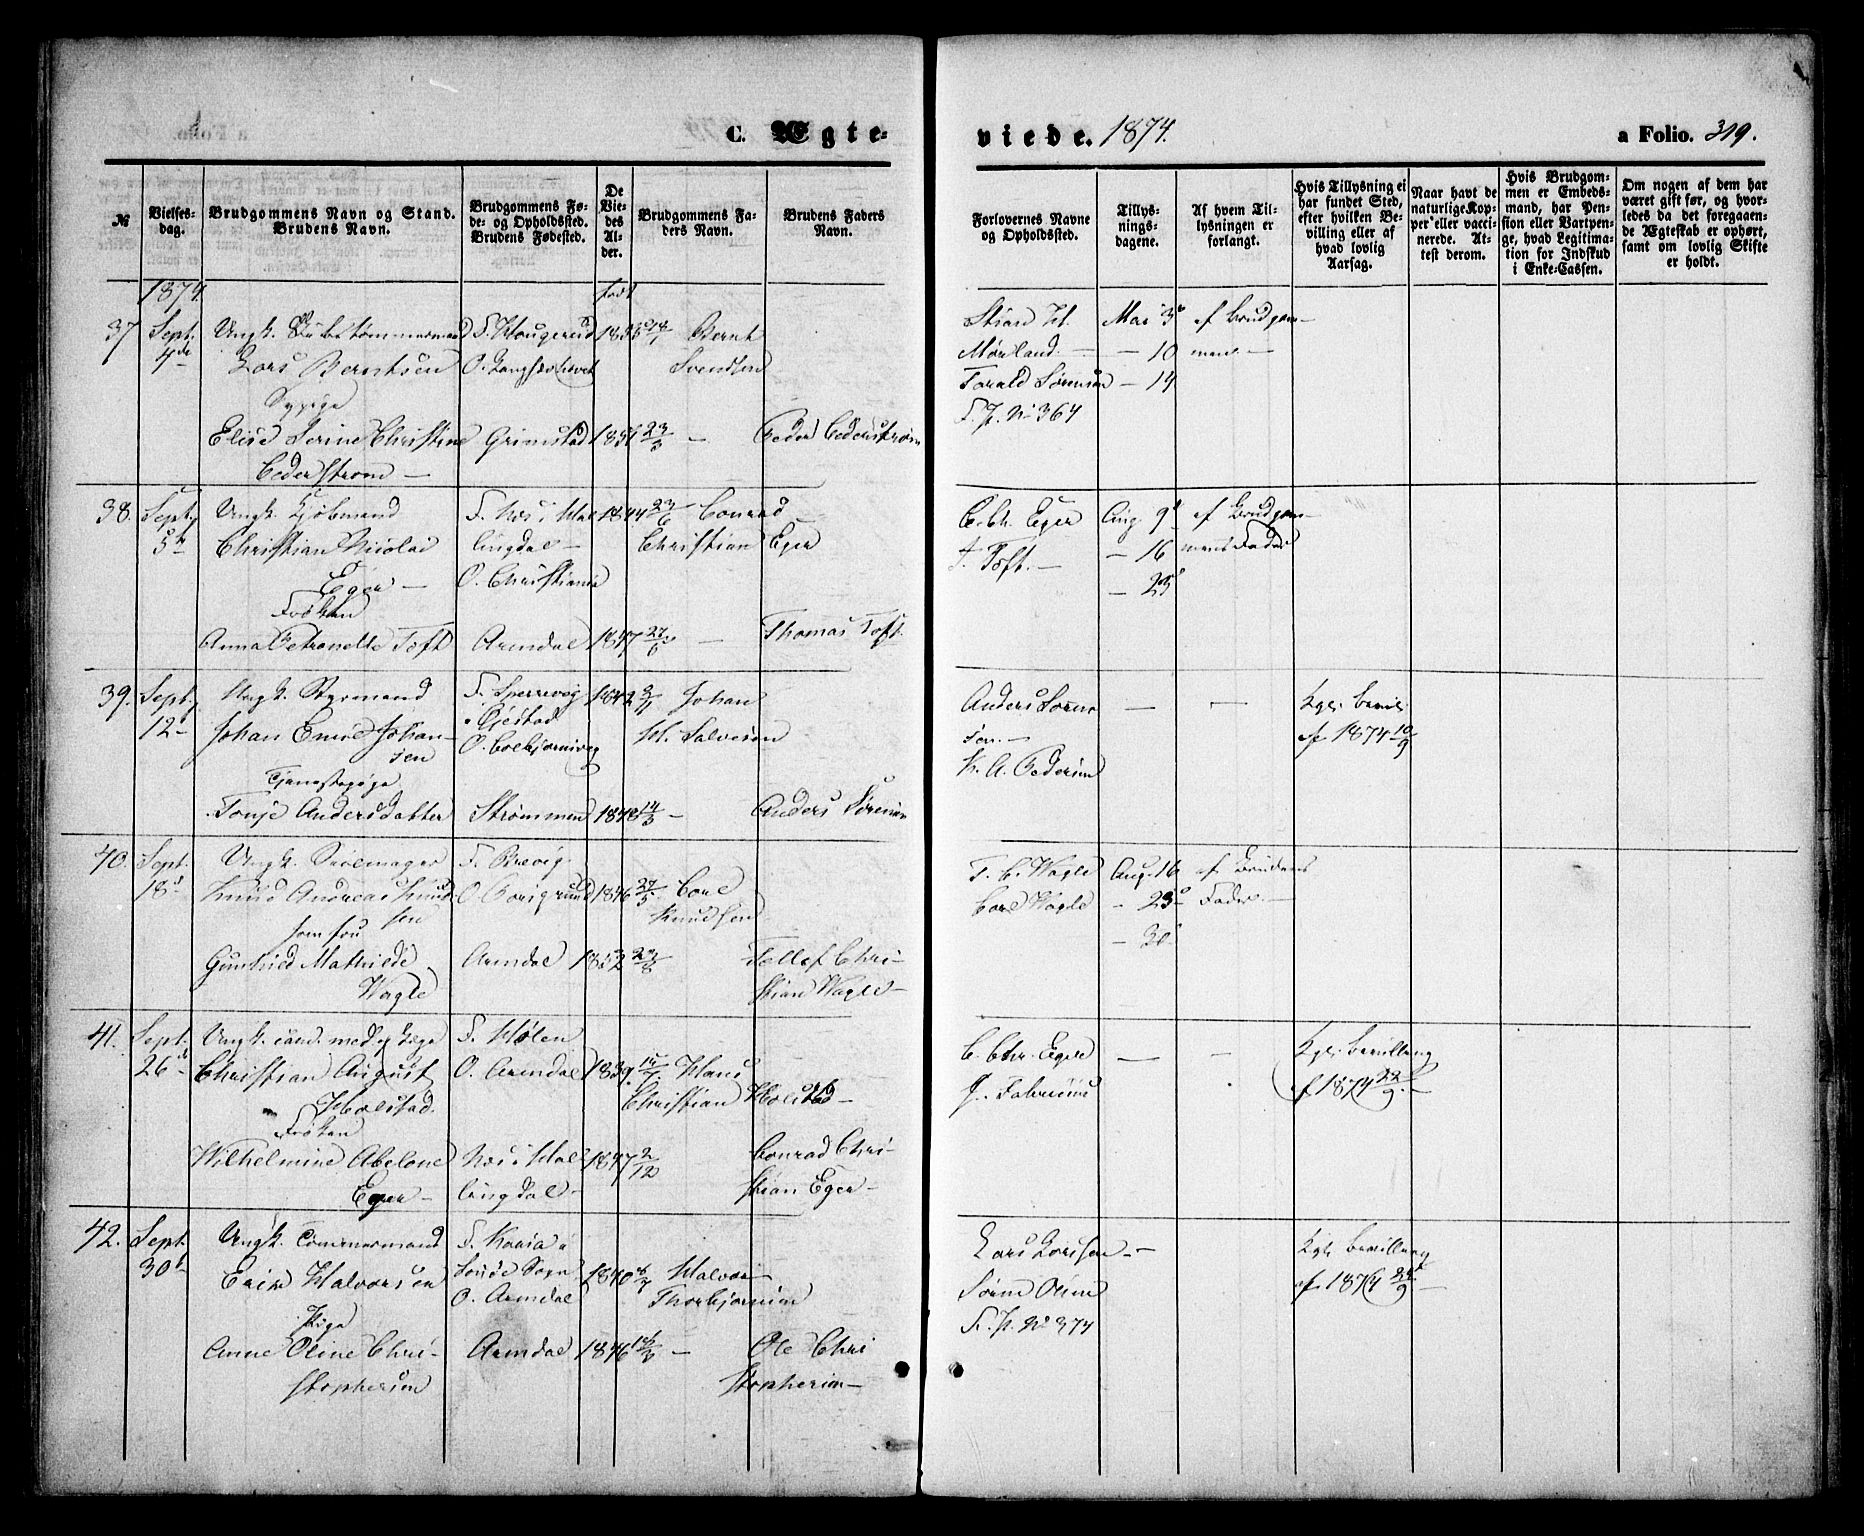 C. Ægte-
viede. 1874.
a Folio. 319.
№
Vielses-
dag.
Brudgommens Navn og Stand.
Brudens Navn.
Brudgommens Fø-
de- og Opholdssted.
Brudens Fødested.
De
Vie-
des Al-
der.
Brudgommens Fa-
ders Navn.
Brudens Faders
Navn.
Forlovernes Navne
og Opholdssted.
Tillys-
nings-
dagene.
Af hvem Til-
lysningen er
forlangt.
Hvis Tillysning ei
har fundet Sted,
efter hvilken Be-
villing eller af
hvad lovlig
Aarsag.
Naar havt de
naturlige Kop-
per eller vacci-
nerede. At-
test derom.
Hvis Brudgom-
men er Embeds-
mand, har Pen-
sion eller Vartpen-
ge, hvad Legitima-
tion for Indskud
i Enke-Cassen.
Om nogen af dem har
været gift før, og hvor-
ledes da det foregaaen-
de Ægteskab er ophørt,
samt om lovlig Skifte
er holdt.
1874. født
37 Sept. 4de
Ungk.
Lars Berntsen
Sypige
Elise Serine Christine
Cederstrøm —
F. Hougerud
O. Langsævhovet
Grimstad
Bernt
Svendsen
Peder Cederstrøm
Stian H.
Mørland. —
Torald Sørensen
F. P. No 364
Mai 3
— 10
— 14
af Brudgom-
men. —
38. Sept. 5te
Ungk. Kjøbmand
Christian Nicolai
Eger —
Frøken
Anna Petronelle Toft
F. Næs i Hal
lingdal —
O. Christiania
Arendal
1844 23/6
1847 27/6
Conrad
Christian Eger
— Thomas Toft.
C. Ch. Eger
T. Toft. —
Aug. 9d
— 16
— 23
af Brudgom-
mens Fader
39. Sept. 12te
Ungk. Styrmand
Johan Emil Johan-
sen
Tjenestepige
Tonje Andersdatter
F. Sperrevig
i Øiestad
O. Colbjørnsvig
Strømmen
1842
1848 14/3
Johan
H. Salvesen
— Anders Sørensen
Anders Sørens
sen. —
K. A. Pedersen
— —
Kgl. Bevil.
af 1874 10/9
40. Sept. 18d
Ungk. Seilmager
Knud Andreas Knud
sen
Jomfru
Gunhild Mathilde
Wagle
F. Brevig
O. Porsgrund
Arendal
1846 27/5
1852 23/8
Carl
Knudsen
Tellef Chri-
stian Wagle —
T. C. Wagle
Carl Wagle
Aug. 16
— 23
— 30
af Brudens
Fader. —
41. Sept. 26de
Ungk. cand. med. og Læge
Christian August
Holstad.
Frøken
Wilhelmine Abelone
Eger —
F. Holen
O. Arendal
Næs i Hal-
lingdal —
1839.
1847 2/12
Hans
Christian Holstad —
Conrad Chri-
stian Eger —
C. Chr. Eger
— —
Kgl. Bevilling
af 1874 22/9. —
42. Sept. 30te
Ungk. Tømmermand
Halvorsen
Pige
Anne Oline Chri-
stophersen
O. Arendal
Arendal
1840
1846
Halvor
Thorbjørnsen
— Ole Chri
stophersen —
Lars Larsen —
F. P. No 374
—
Kgl. Bevilling
af 1874 —